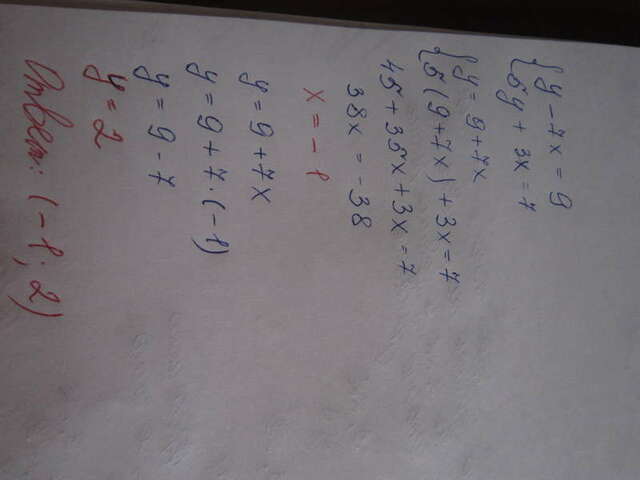 { y - 7x = 9
{ 5y + 3x = 7
{ y = 9 + 7x
{ 5(9 + 7x) + 3x = 7
45 + 35x + 3x = 7
38x = -38
x = -1
y = 9 + 7x
y = 9 + 7·(-1)
y = 9 - 7
y = 2
Ответ: (-1; 2)